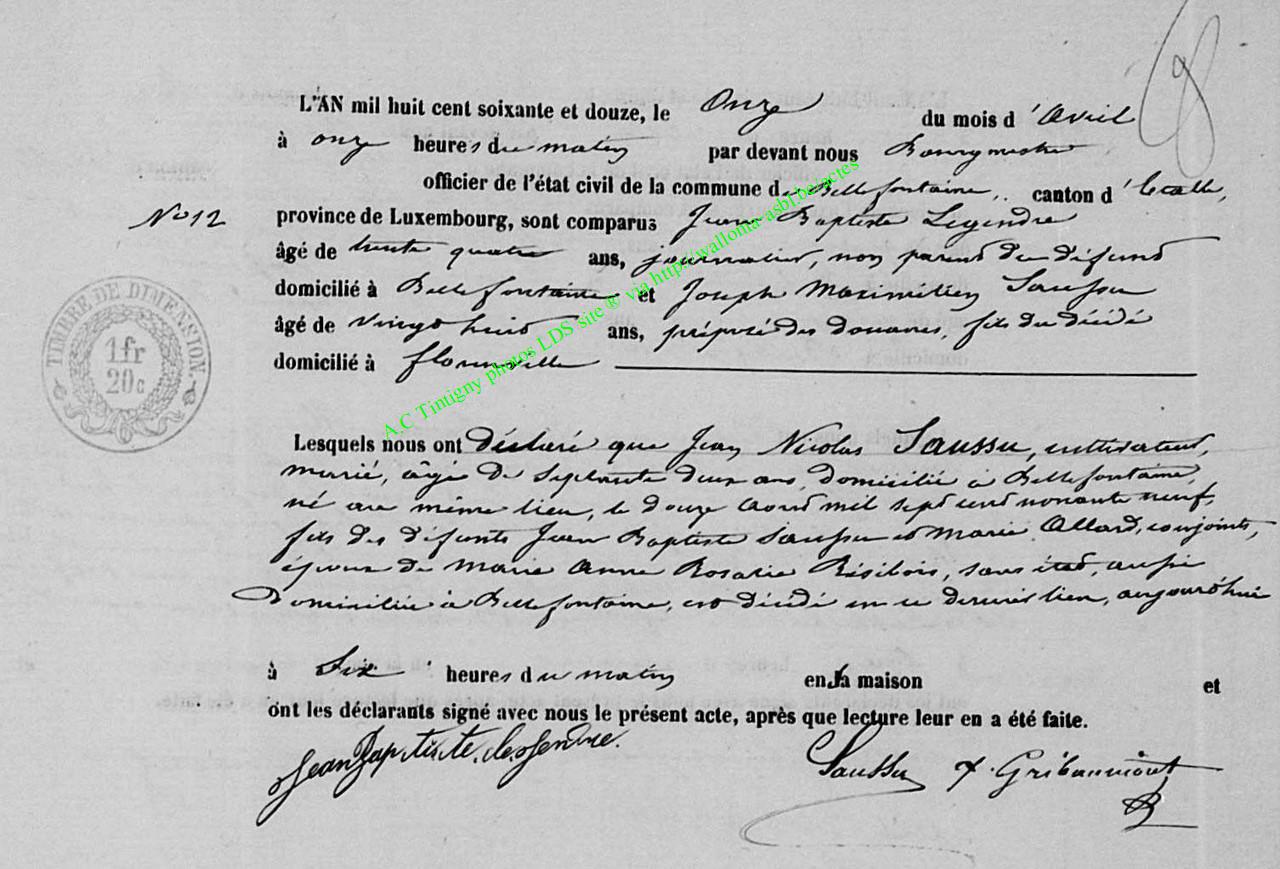 L'AN mil huit cent soixante et douze, le Onze du mois d'Avril
à onze heures du matin par devant nous Bourgmestre
officier de l'état civil de la commune de Bellefontaine, canton d'Etalle,
No 12
province de Luxembourg, sont comparus Jean Baptiste Legendre
âgé de trente quatre ans, journalier, non parent du défunt
domicilié à Bellefontaine et Joseph Maximilien Saussu
âgé de vingt huit ans, préposé des douanes, fils du décédé
domicilié à florenville
TIMBRE DE DIMENSION
1 fr
20c
Lesquels nous ont déclaré que Jean Nicolas Saussu, cultivateur,
marié, âgé de septante deux ans, domicilié à Bellefontaine,
né au même lieu, le douze août mil sept cent nonante neuf,
fils des défunts Jean Baptiste Saussu et Marie Allard, conjoints,
époux de Marie Anne Rosalie Résibois, sans état, aussi
domiciliée à Bellefontaine, est décédé en ce dernier lieu, aujourd'hui
à six heures du matin en sa maison et
ont les déclarants signé avec nous le présent acte, après que lecture leur en a été faite.
Jean Baptiste Legendre. Saussu f. Gribaumont
A.C Tintigny photos LDS site ® via http://wallonia-asbl.be/actes